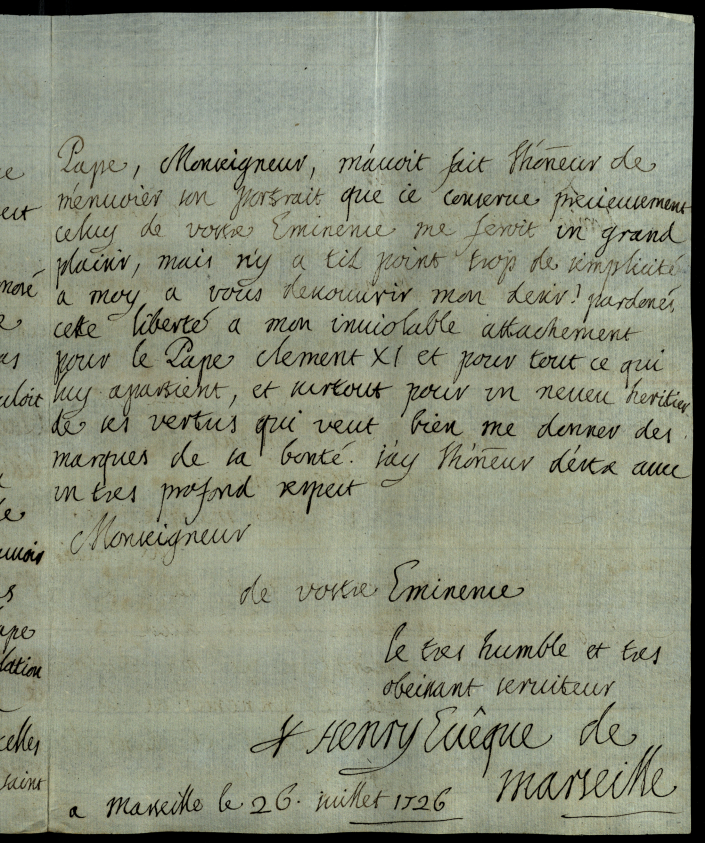 Pape, Monseigneur, m'auoit fait l'hoñeur de
m'enuoier son portrait que ie conserue precieusement
celuy de vostre Eminence me feroit un grand
plaisir, mais n'y a til point trop de simplicité
a moy a vous decouurir mon desir? pardonés
cette liberté a mon inuiolable attachement
pour le Pape clement XI et pour tout ce qui
luy apartient, et surtout pour un neueu heritier
de ses vertus qui veut bien me donner des
marques de sa bonté. i'ay l'hoñeur d'estre auec
un tres profond respect
Monseigneur
de vostre Eminence
le tres humble et tres
obeissant seruiteur
+ Henry Euêque de
marseille
a marseille le 26. iuillet 1726